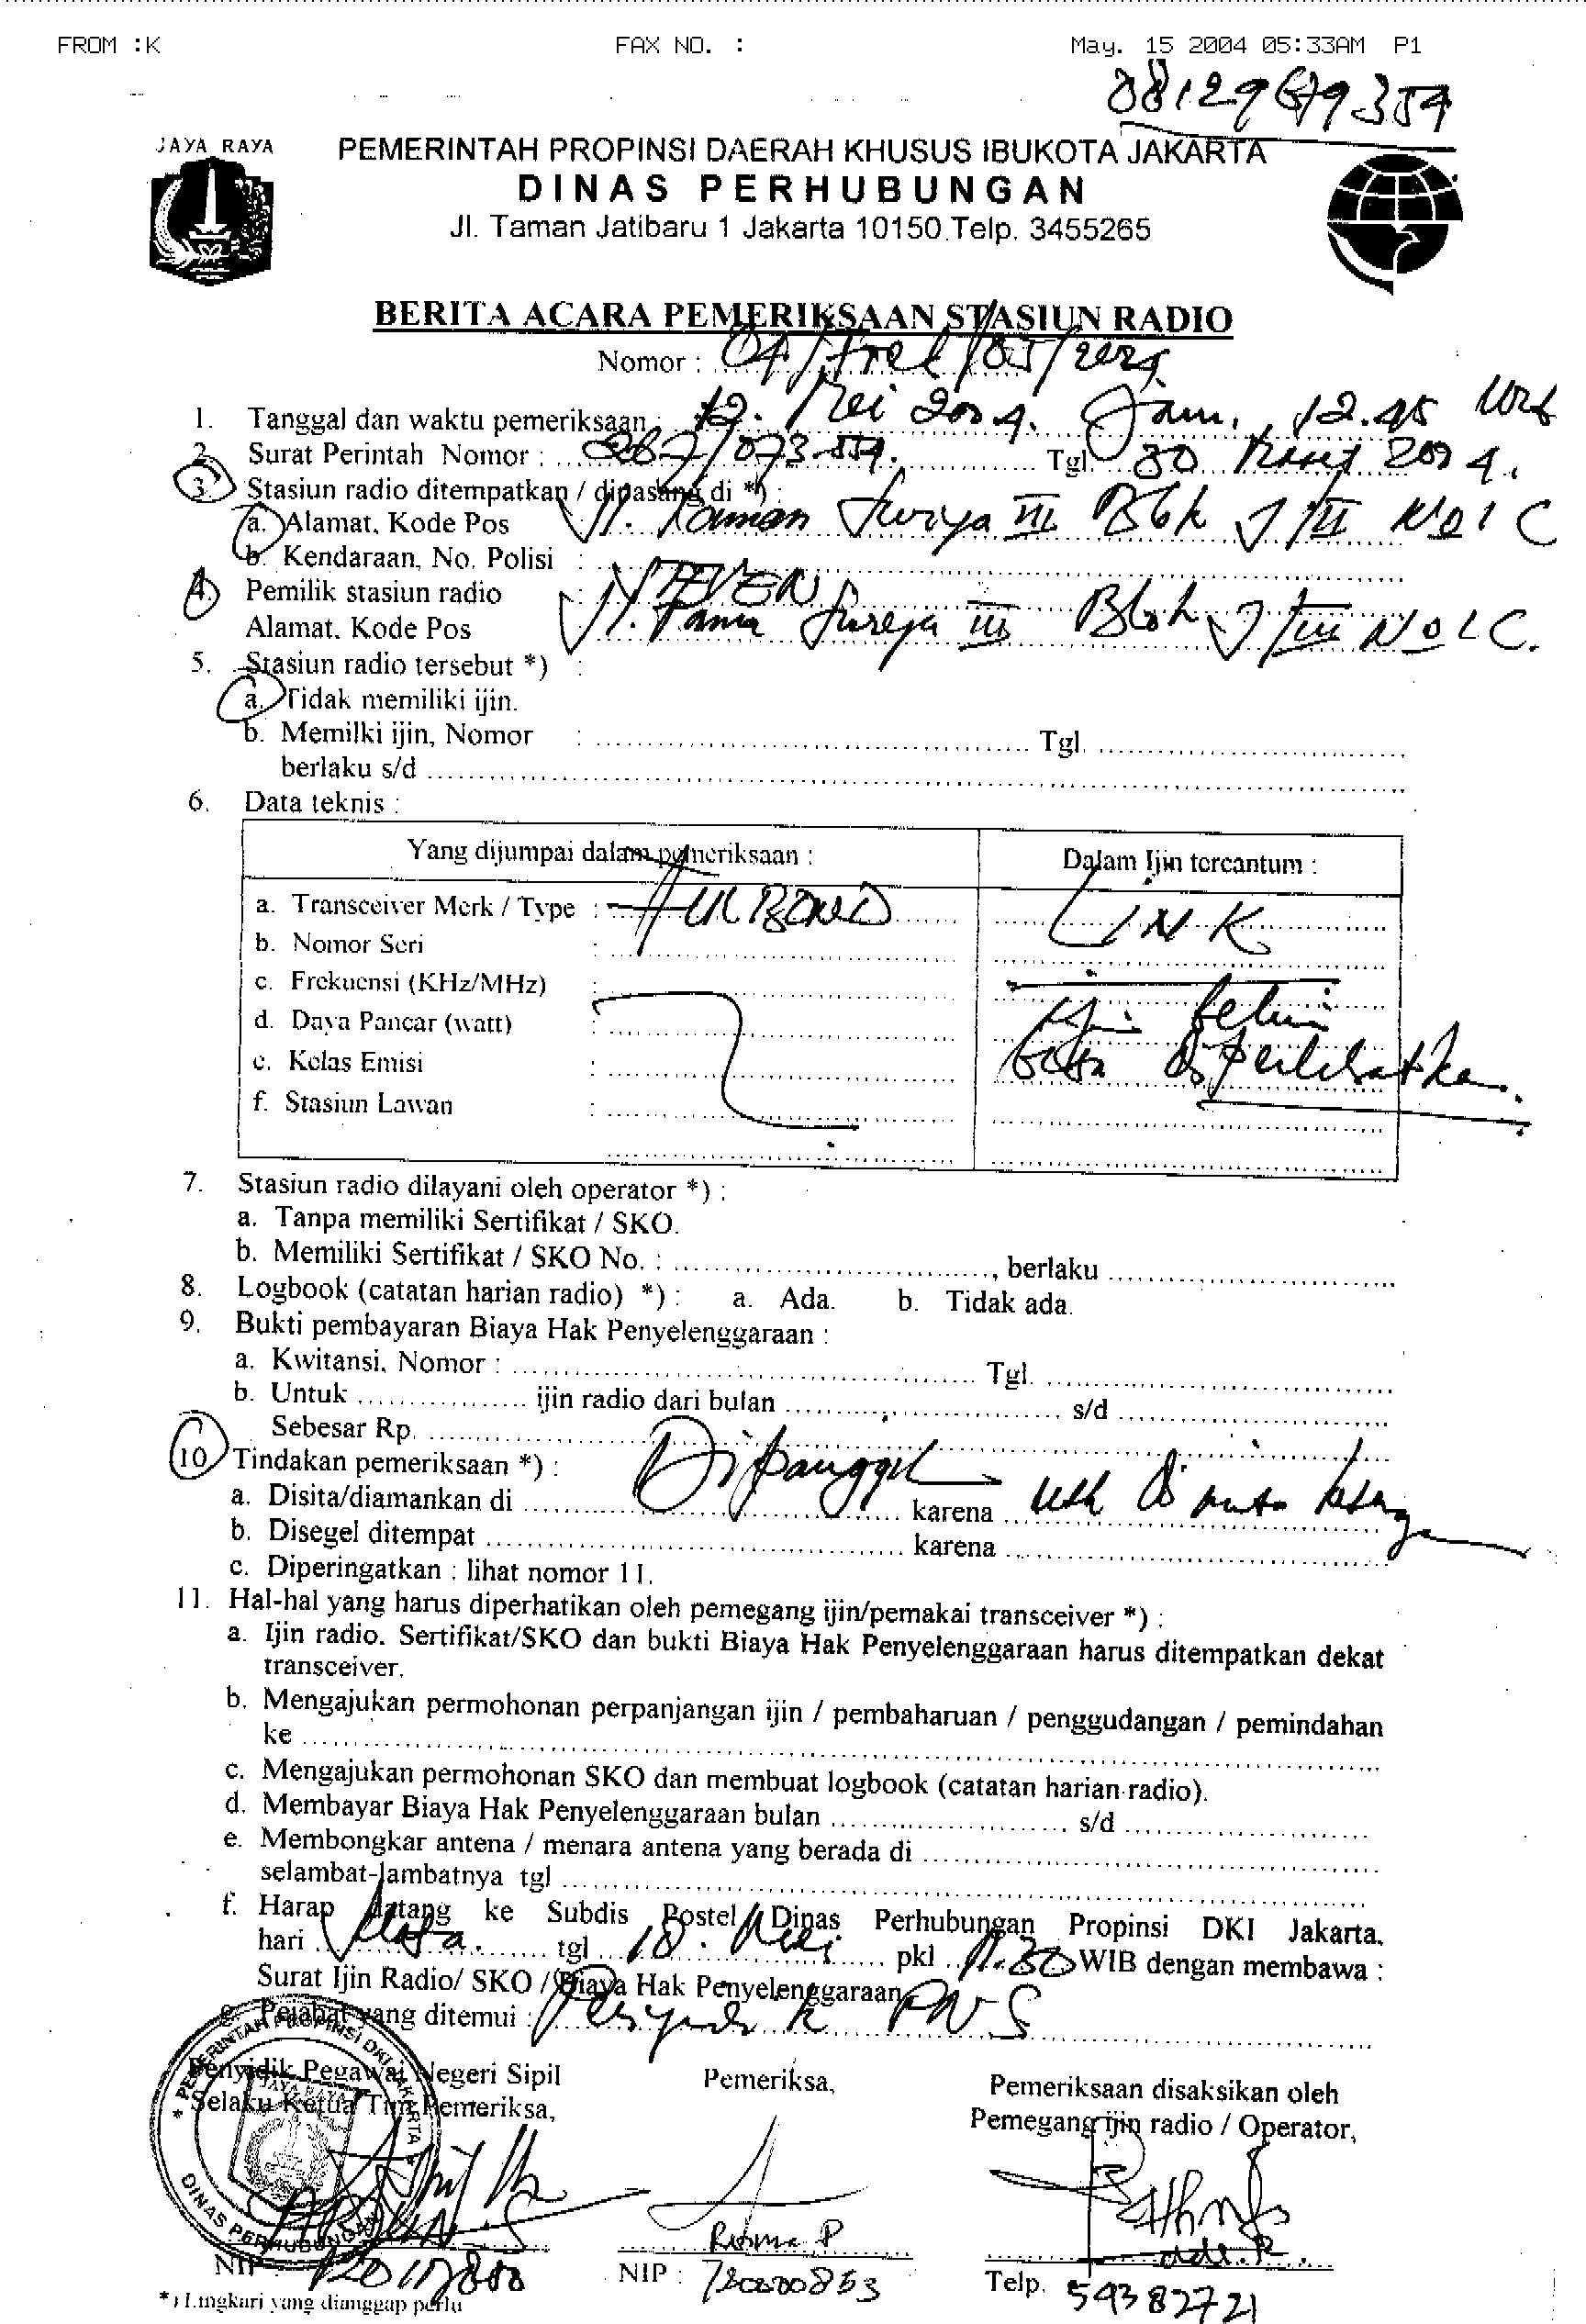 FROM :K FAX NO. : May. 15 2004 05:33AM P1
JAYA RAYA
PEMERINTAH PROPINSI DAERAH KHUSUS IBUKOTA JAKARTA
DINAS PERHUBUNGAN
Jl. Taman Jatibaru 1 Jakarta 10150.Telp. 3455265
BERITA ACARA PEMERIKSAAN STASIUN RADIO
Nomor :
1. Tanggal dan waktu pemeriksaan : 12. Mei 2004. Jam. 12.45
2. Surat Perintah Nomor : Tgl. 30 2004.
3. Stasiun radio ditempatkan / dipasang di *) :
a. Alamat, Kode Pos Jl. Taman Surya III Blok
b. Kendaraan, No. Polisi :
4. Pemilik stasiun radio : STEVEN
Alamat, Kode Pos : Jl. Taman Surya III Blok
5. Stasiun radio tersebut *) :
a. Tidak memiliki ijin.
b. Memilki ijin, Nomor : Tgl.
berlaku s/d
6. Data teknis :
Yang dijumpai dalam pemeriksaan : Dalam Ijin tercantum :
a. Transceiver Merk / Type : LINK
b. Nomor Seri :
c. Frekuensi (KHz/MHz) :
d. Daya Pancar (watt) : Ijin belum
e. Kelas Emisi : diperlihatkan.
f. Stasiun Lawan :
7. Stasiun radio dilayani oleh operator *) :
a. Tanpa memiliki Sertifikat / SKO.
b. Memiliki Sertifikat / SKO No. : , berlaku
8. Logbook (catatan harian radio) *) : a. Ada. b. Tidak ada.
9. Bukti pembayaran Biaya Hak Penyelenggaraan :
a. Kwitansi, Nomor : Tgl.
b. Untuk ijin radio dari bulan s/d
Sebesar Rp.
10 Tindakan pemeriksaan *) : Dipanggil
a. Disita/diamankan di karena
b. Disegel ditempat karena
c. Diperingatkan : lihat nomor 11.
11. Hal-hal yang harus diperhatikan oleh pemegang ijin/pemakai transceiver *) :
a. Ijin radio. Sertifikat/SKO dan bukti Biaya Hak Penyelenggaraan harus ditempatkan dekat
transceiver.
b. Mengajukan permohonan perpanjangan ijin / pembaharuan / penggudangan / pemindahan
ke
c. Mengajukan permohonan SKO dan membuat logbook (catatan harian radio).
d. Membayar Biaya Hak Penyelenggaraan bulan s/d
e. Membongkar antena / menara antena yang berada di
selambat-lambatnya tgl
f. Harap datang ke Subdis Postel Dinas Perhubungan Propinsi DKI Jakarta,
hari Selasa. tgl 18. Mei pkl WIB dengan membawa :
Surat Ijin Radio/ SKO / Biaya Hak Penyelenggaraan
g. Pejabat yang ditemui : Penyidik PNS
Penyidik Pegawai Negeri Sipil Pemeriksa, Pemeriksaan disaksikan oleh
Selaku Ketua Tim Pemeriksa, Pemegang ijin radio / Operator,
PEMERINTAH PROPINSI DKI JAKARTA
JAYA RAYA
DINAS PERHUBUNGAN
NIP : NIP : Telp. 59382721
*) Lingkari yang dianggap perlu